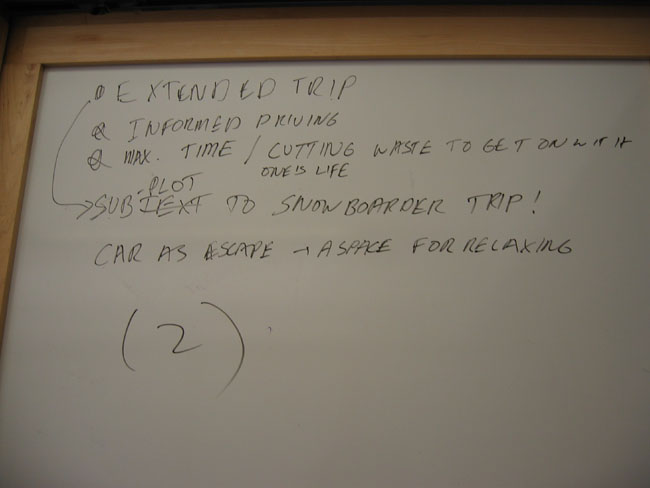 EXTENDED TRIP
INFORMED DRIVING
MAX. TIME / CUTTING WASTE TO GET ON WITH
ONE IS LIFE
-PLOT
SUBTEXT TO SNOWBOARDER TRIP!
CAR AS ESCAPE → A SPACE FOR RELAXING
(2)